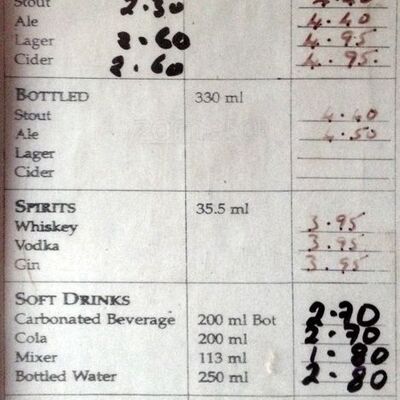 Stout 2.30 4.40
Ale 4.40
Lager 2.60 4.95
Cider 2.60 4.95.
BOTTLED 330 ml
Stout 4.40
Ale 4.50
Lager
Cider
SPIRITS 35.5 ml
Whiskey 3.95
Vodka 3.95
Gin 3.95
SOFT DRINKS
Carbonated Beverage 200 ml Bot 2.70
Cola 200 ml 2.70
Mixer 113 ml 1.80
Bottled Water 250 ml 2.80